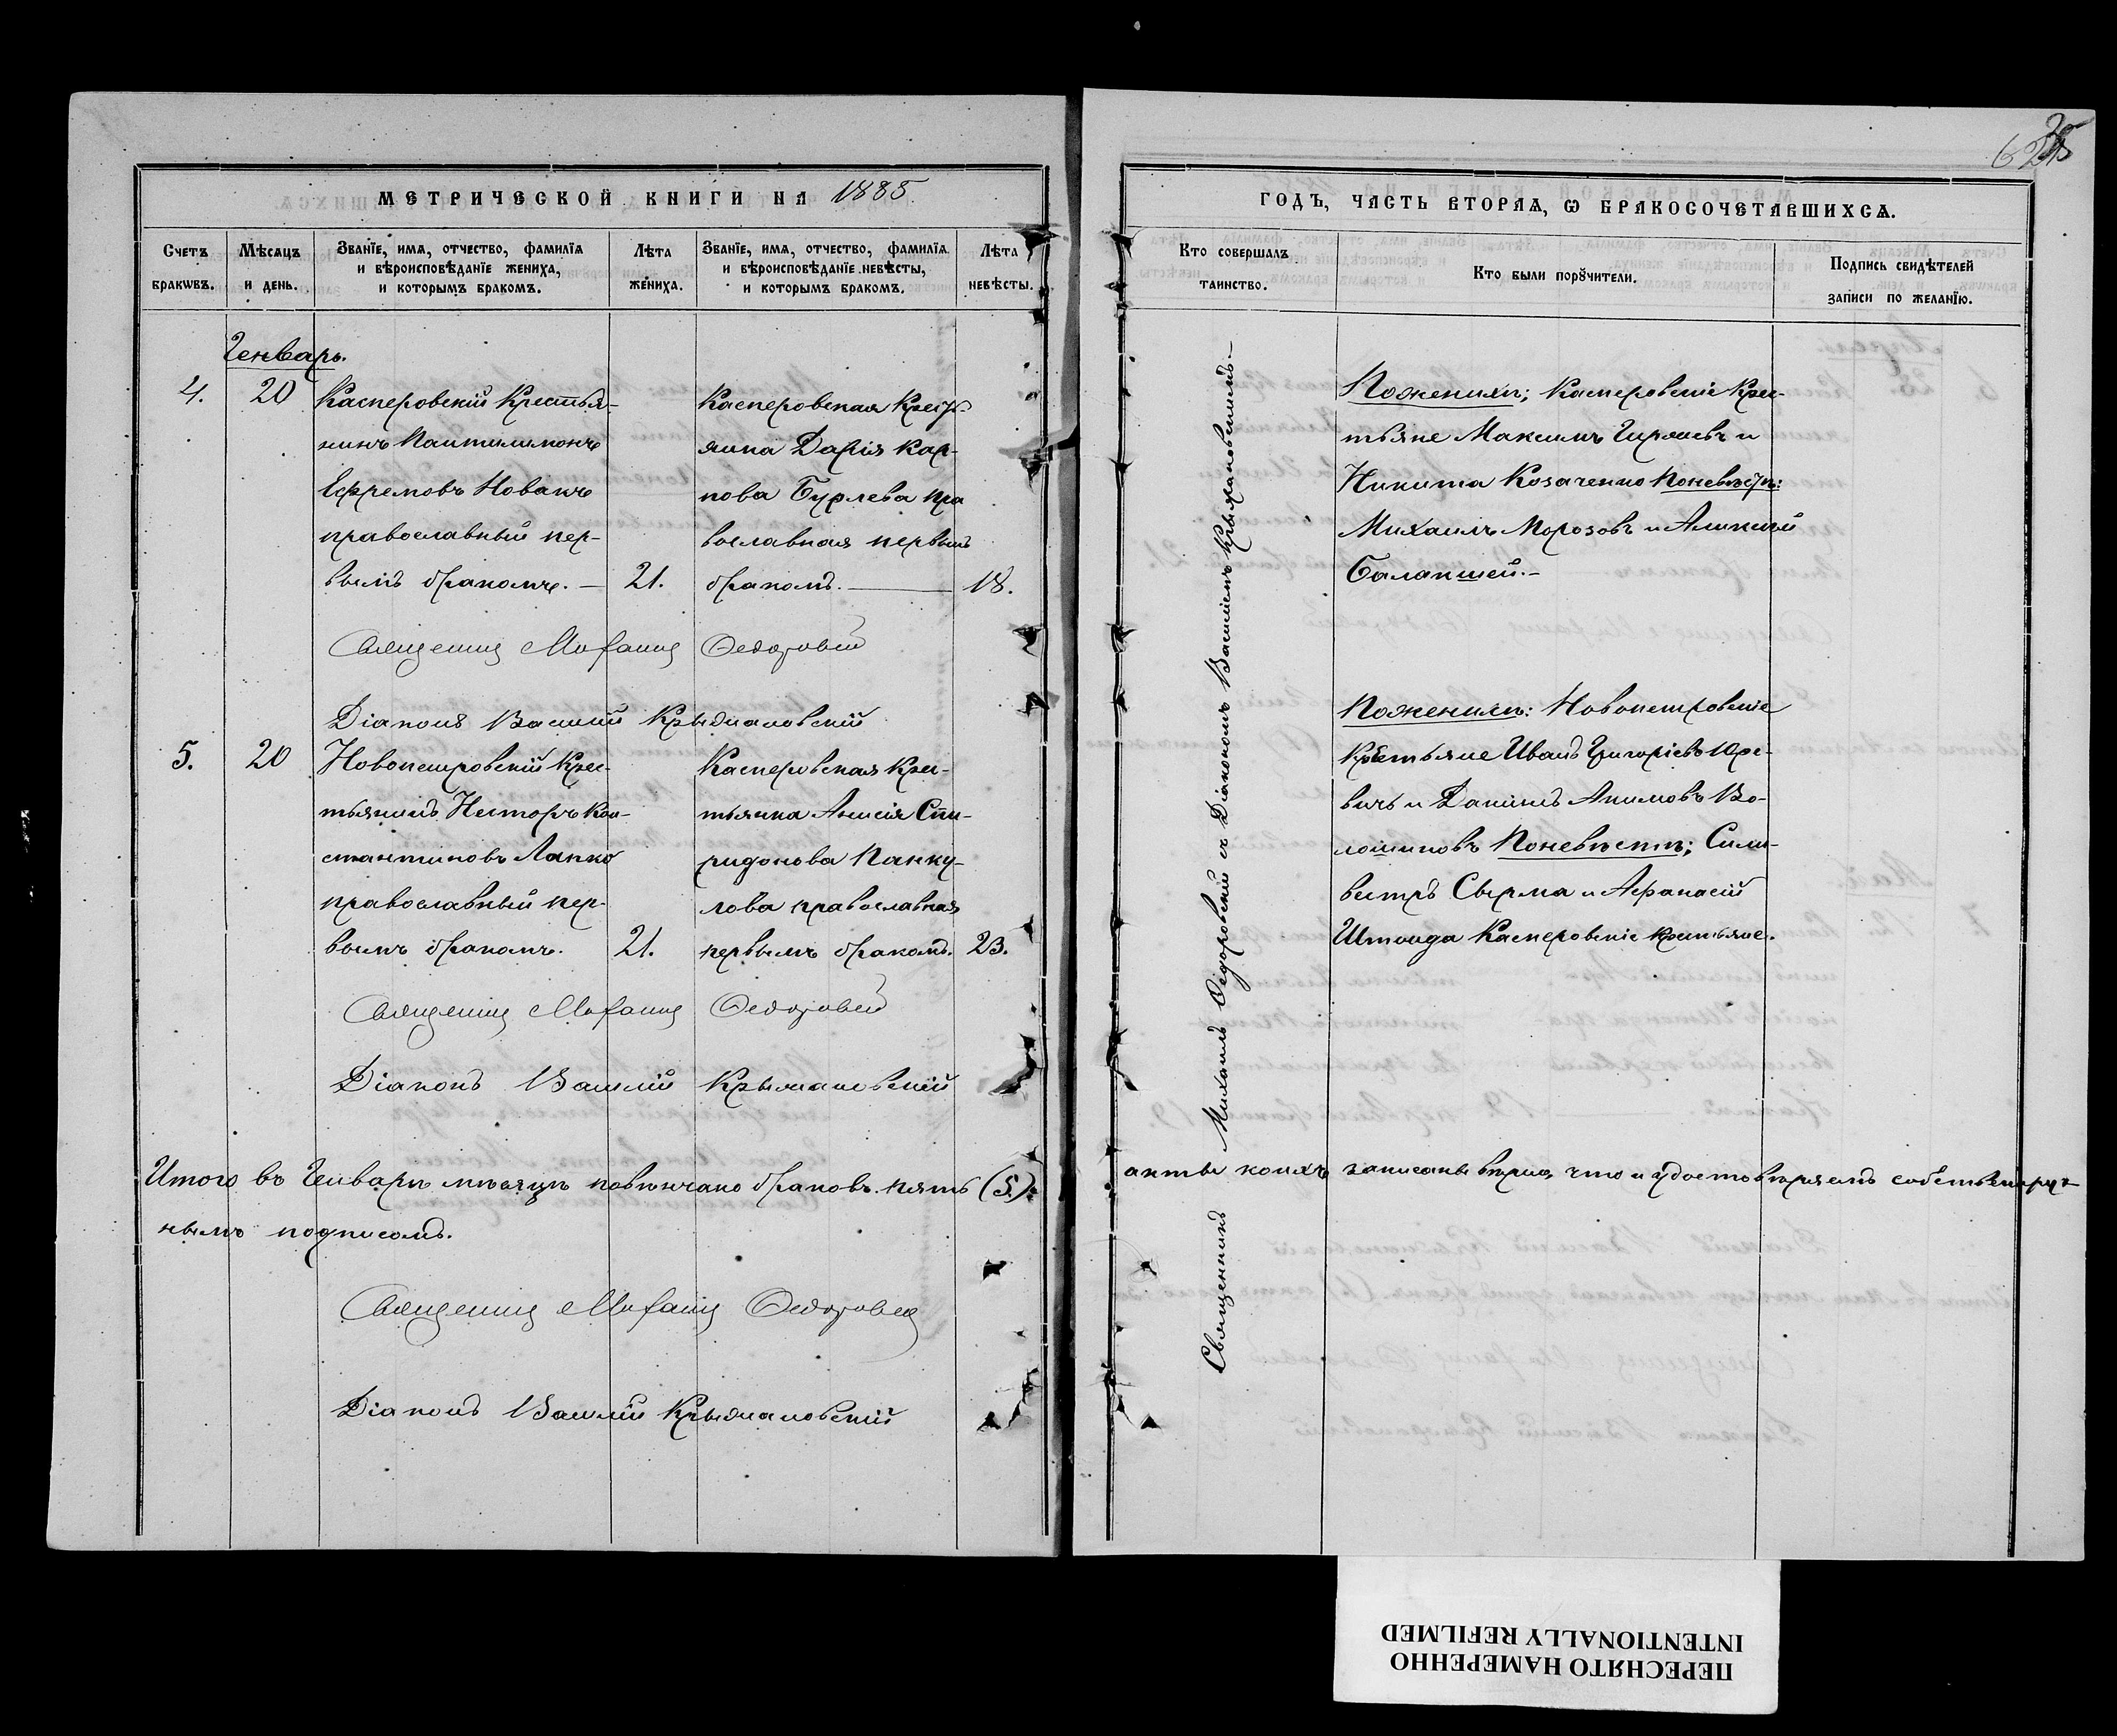 МЕТРИЧЕСКОЙ КНИГИ НА 1885
Счетъ браковъ.
Мѣсяцъ и день.
Званїе, имя, отчество, фамилїя
и вѣроисповѣданїе жениха,
и которымъ бракомъ.
Лѣта
жениха.
Званїе, имя, отчество, фамилїя
и вѣроисповѣданїе невѣсты,
и которымъ бракомъ.
Лѣта
невѣсты.
Генварь.
4.
20
Касперовскій Крестья-
нинъ Пантилимонъ
Ефремовъ Новакъ
православный пер-
вымъ бракомъ. —
21.
Касперовская Крест-
янка Дарія Кар-
пова Бурлева пра
вославная первымъ
бракомъ. —
18.
Священникъ Михаилъ Ѳедоровскій
Діаконъ Василій Крыжановскій
5.
20
Новопетровскій Крес-
тьянинъ Несторъ Кон-
стантиновъ Лапко
православный пер-
вымъ бракомъ.
21.
Касперовская Крес-
тьянка Анисія Спи-
ридонова Панку-
лова православная
первымъ бракомъ.
23.
Священникъ Михаилъ Ѳедоровскій
Діаконъ Василій Крыжановскій
Итого въ Генварѣ мѣсяцѣ повѣнчано браковъ пять (5)
нымъ подписомъ.
Священникъ Михаилъ Ѳедоровскій
Діаконъ Василій Крыжановскій
ГОДЪ, ЧАСТЬ ВТОРАЯ, Ѡ БРАКОСОЧЕТАВШИХСЯ.
Кто совершалъ
таинство.
Кто были порꙋчители.
Подпись свидѣтелей
записи по желанїю.
Священникъ Михаилъ Ѳедоровскій съ Діакономъ Василіемъ Крыжановскимъ.—
По женихѣ; Касперовскіе Крес-
тьяне Максимъ и
Никита Козаченко По невѣстѣ:
Михаилъ Морозовъ и Алексѣй
Балакшей.—
По женихѣ: Новопетровскіе
Крестьяне Иванъ Григоріевъ Юре-
вичъ и Даниилъ Акимовъ Во-
лошиновъ По невѣстѣ; Сили-
вестръ Сырма и Афанасій
Штонда Касперовскіе крестьяне.
акты коихъ записаны вѣрно, что и удостовѣряемъ собственоруч
ПЕРЕСНЯТО НАМЕРЕННО
INTENTIONALLY REFILMED